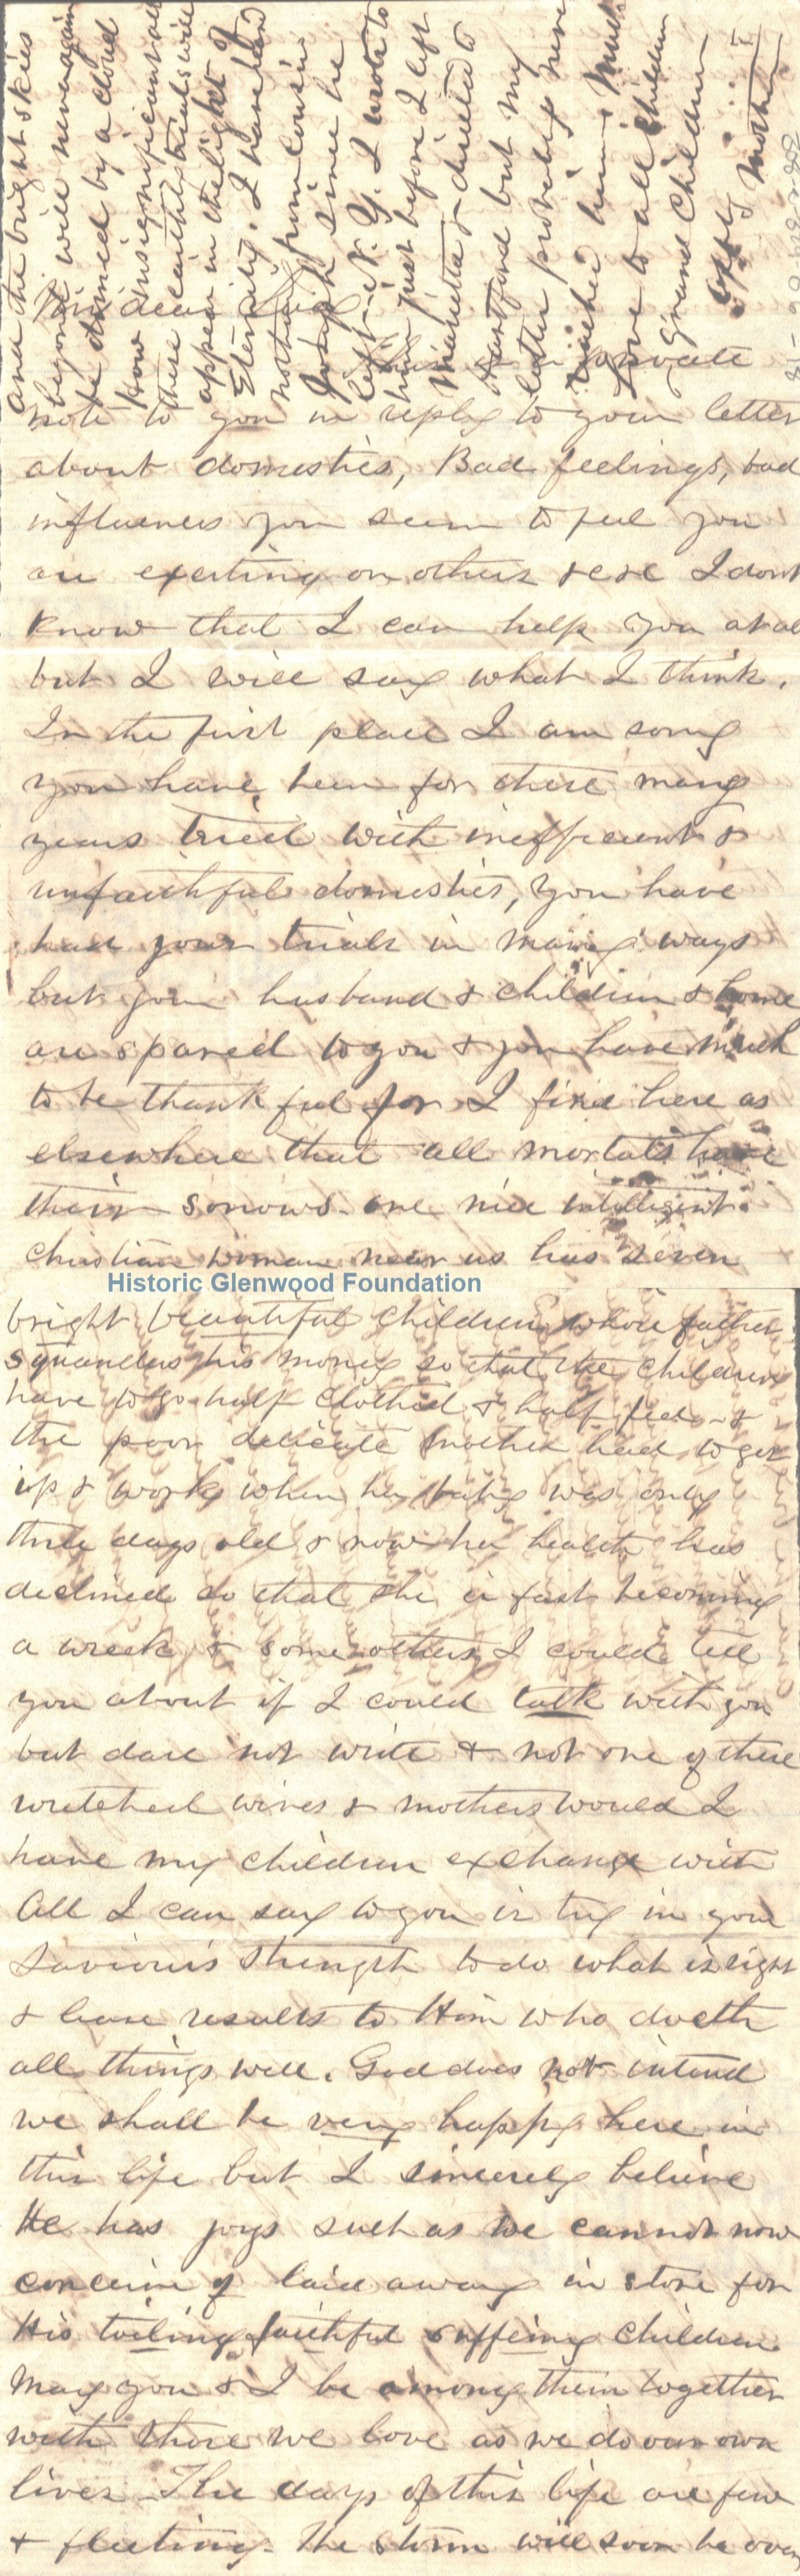 My dear
This is a private
note to you in reply to your letter
about domestics, Bad feelings, bad
influences you seem to feel you
are exerting on others &c &c I dont
know that I can help you at al
but I will say what I think.
In the first place I am sorry
you have been for these many
years tried with inefficient &
unfaithful domestics, you have
had your trials in many ways
but your husband & children & home
are spared to you & you have much
to be thankful for I find here as
elsewhere that all mortals have
their sorrows. one nice intelligent
christian woman near us has seven
Historic Glenwood Foundation
bright beautiful children whose father
squanders his money so that the children
have to go half clothed & half fed - &
the poor delicate mother had to get
up & work when her baby was only
three days old & now her health has
declined so that she is fast becoming
a wreck & some others I could tell
you about if I could talk with you
but dare not write & not one of these
wretched wives & mothers would I
have my children exchange with
All I can say to you is try in your
Saviour's strength to do what is right
& leave results to Him who doeth
all things well. God does not intend
we shall be very happy here in
this life but I sincerely believe
He has joys such as we cannot now
conceive of laid away in store for
His toiling faithful suffering children
May you & I be among them together
with those we love as we do our own
lives - The days of this life are few
& fleeting. The storm will soon be over
and the bright skies
beyond will never again
be dimmed by a cloud
How insignificant all
these earthly trials will
appear in the light of
Eternity. I have had
nothing from Cousin
Joseph since he
left N.Y. I wrote to
him just before I left
Marietta & directed to
Hartford but my
letter probably never
reached him - Much
love to all Children
& Grand Children
Mother